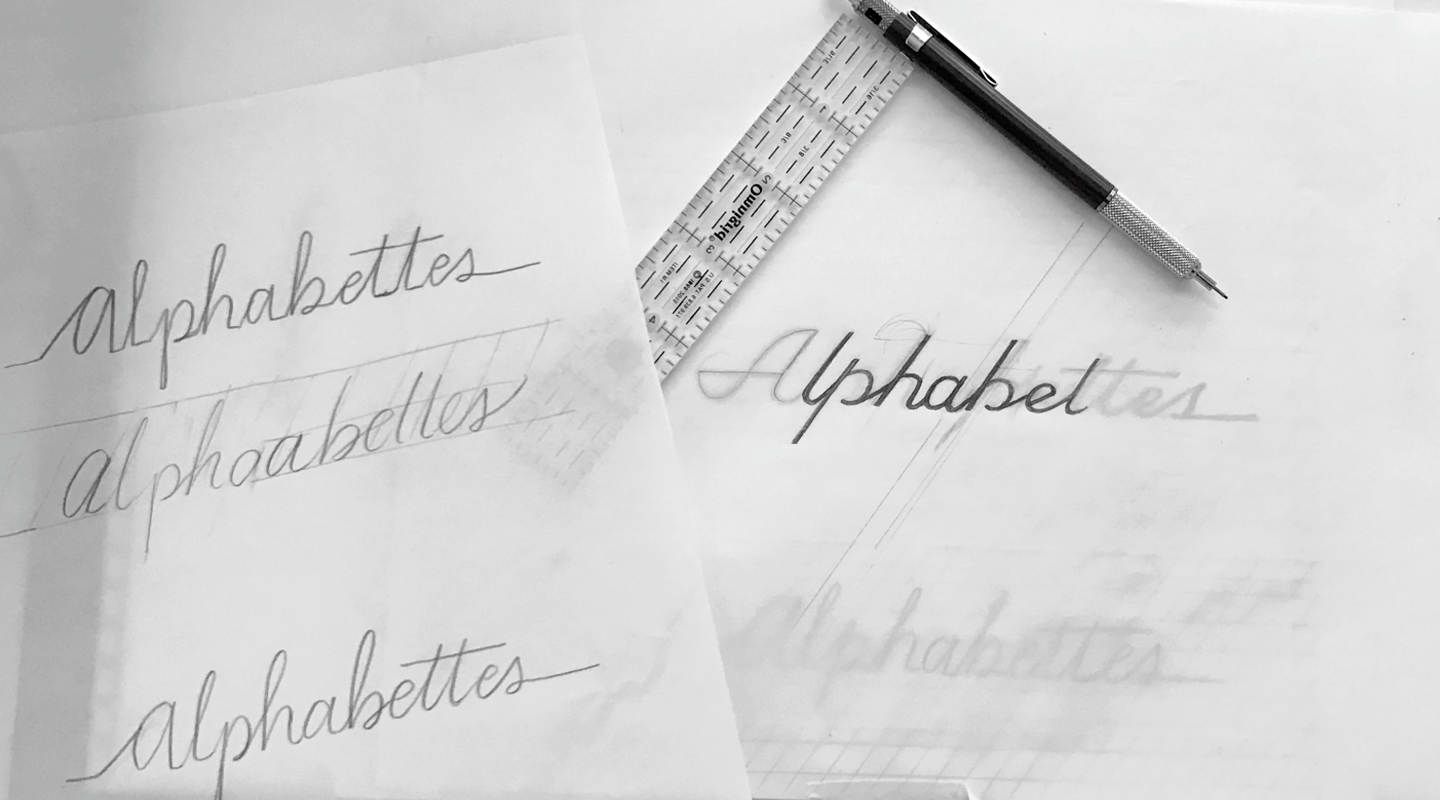 Alphabettes
Alphoabettes
Alphabettes
Omnigrid
Alphabettes
Alphabettes